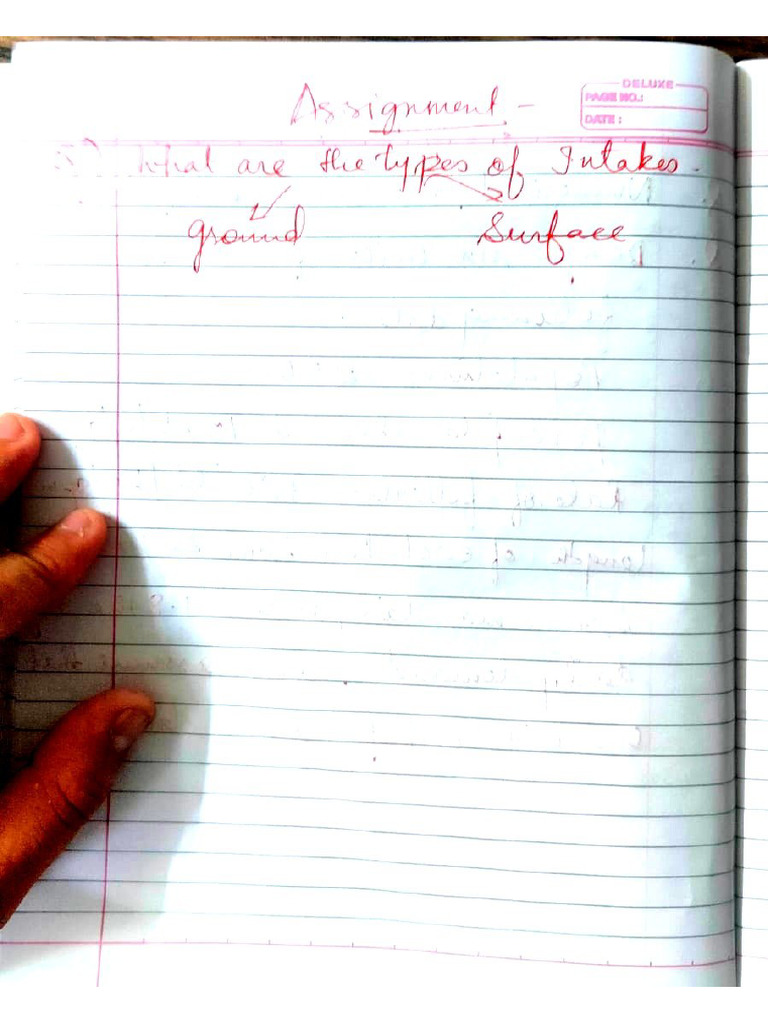 DELUXE
PAGE NO.:
DATE :
Assignment -
What are the types of Intakes.
ground Surface